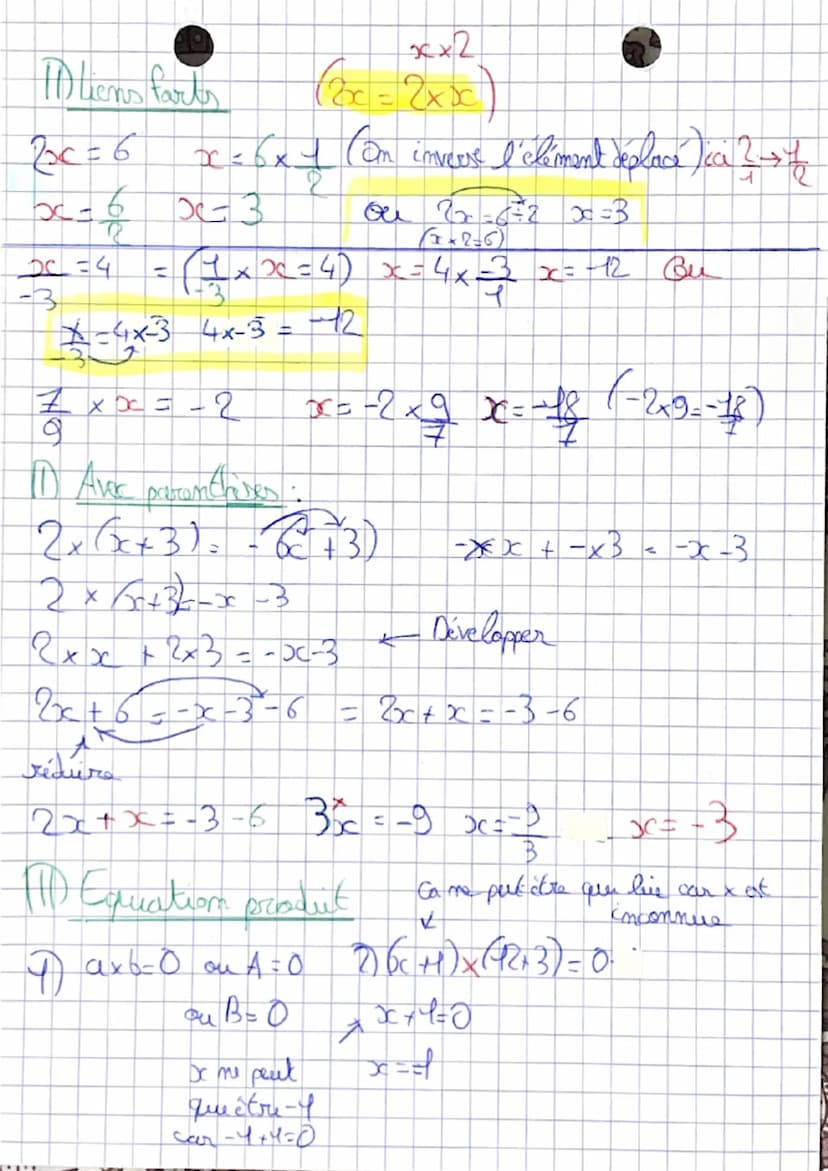 x×2
II) Liens forts (2x = 2×x)
2x = 6 x = 6 × 1/2 (On inverse l'élément déplacé) ici 2/1 → 1/2
x = 6/2 x = 3 ou 2x = 6÷2 x = 3
(x × 2 = 6)
x/-3 = 4 = (1/-3 × x = 4) x = 4 × -3/1 x = -12 Ou
x/-3 = 4×-3 4×-3 = -12
7/9 × x = -2 x = -2 × 9/7 x = -18/7 (-2×9 = -18/7)
II) Avec paranthèses :
2×(x+3) = -(x+3) -×x + -×3 = -x -3
2 × (x+3) = -x -3
2×x + 2×3 = -x-3 ← Développer
2x + 6 = -x -3 -6 = 2x + x = -3 -6
réduire
2x + x = -3 -6 3×x = -9 x = -9/3 x = -3
III) Equation produit Ca ne peut être que lui car x est
inconnue
1) a×b=0 ou A=0 2) (x+1)×(12+3) = 0
ou B=0 x+1=0
x ne peut x=-1
qu'être -1
car -1+1=0